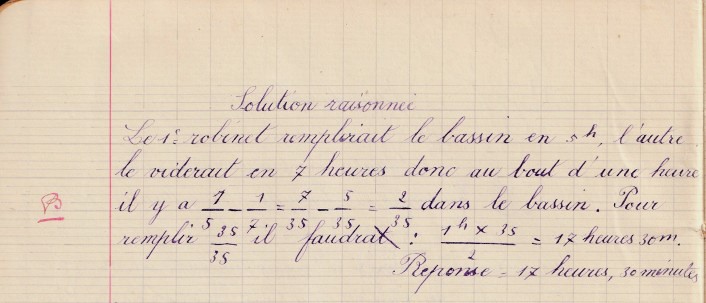 Solution raisonnée
Le 1er robinet remplirait le bassin en 5h, l'autre
le viderait en 7 heures donc au bout d'une heure
B il y a 1/5 - 1/7 = 7/35 - 5/35 = 2/35 dans le bassin. Pour
remplir 35/35 il faudrat : 1h × 35 / 2 = 17 heures 30m.
Reponse = 17 heures, 30 minutes